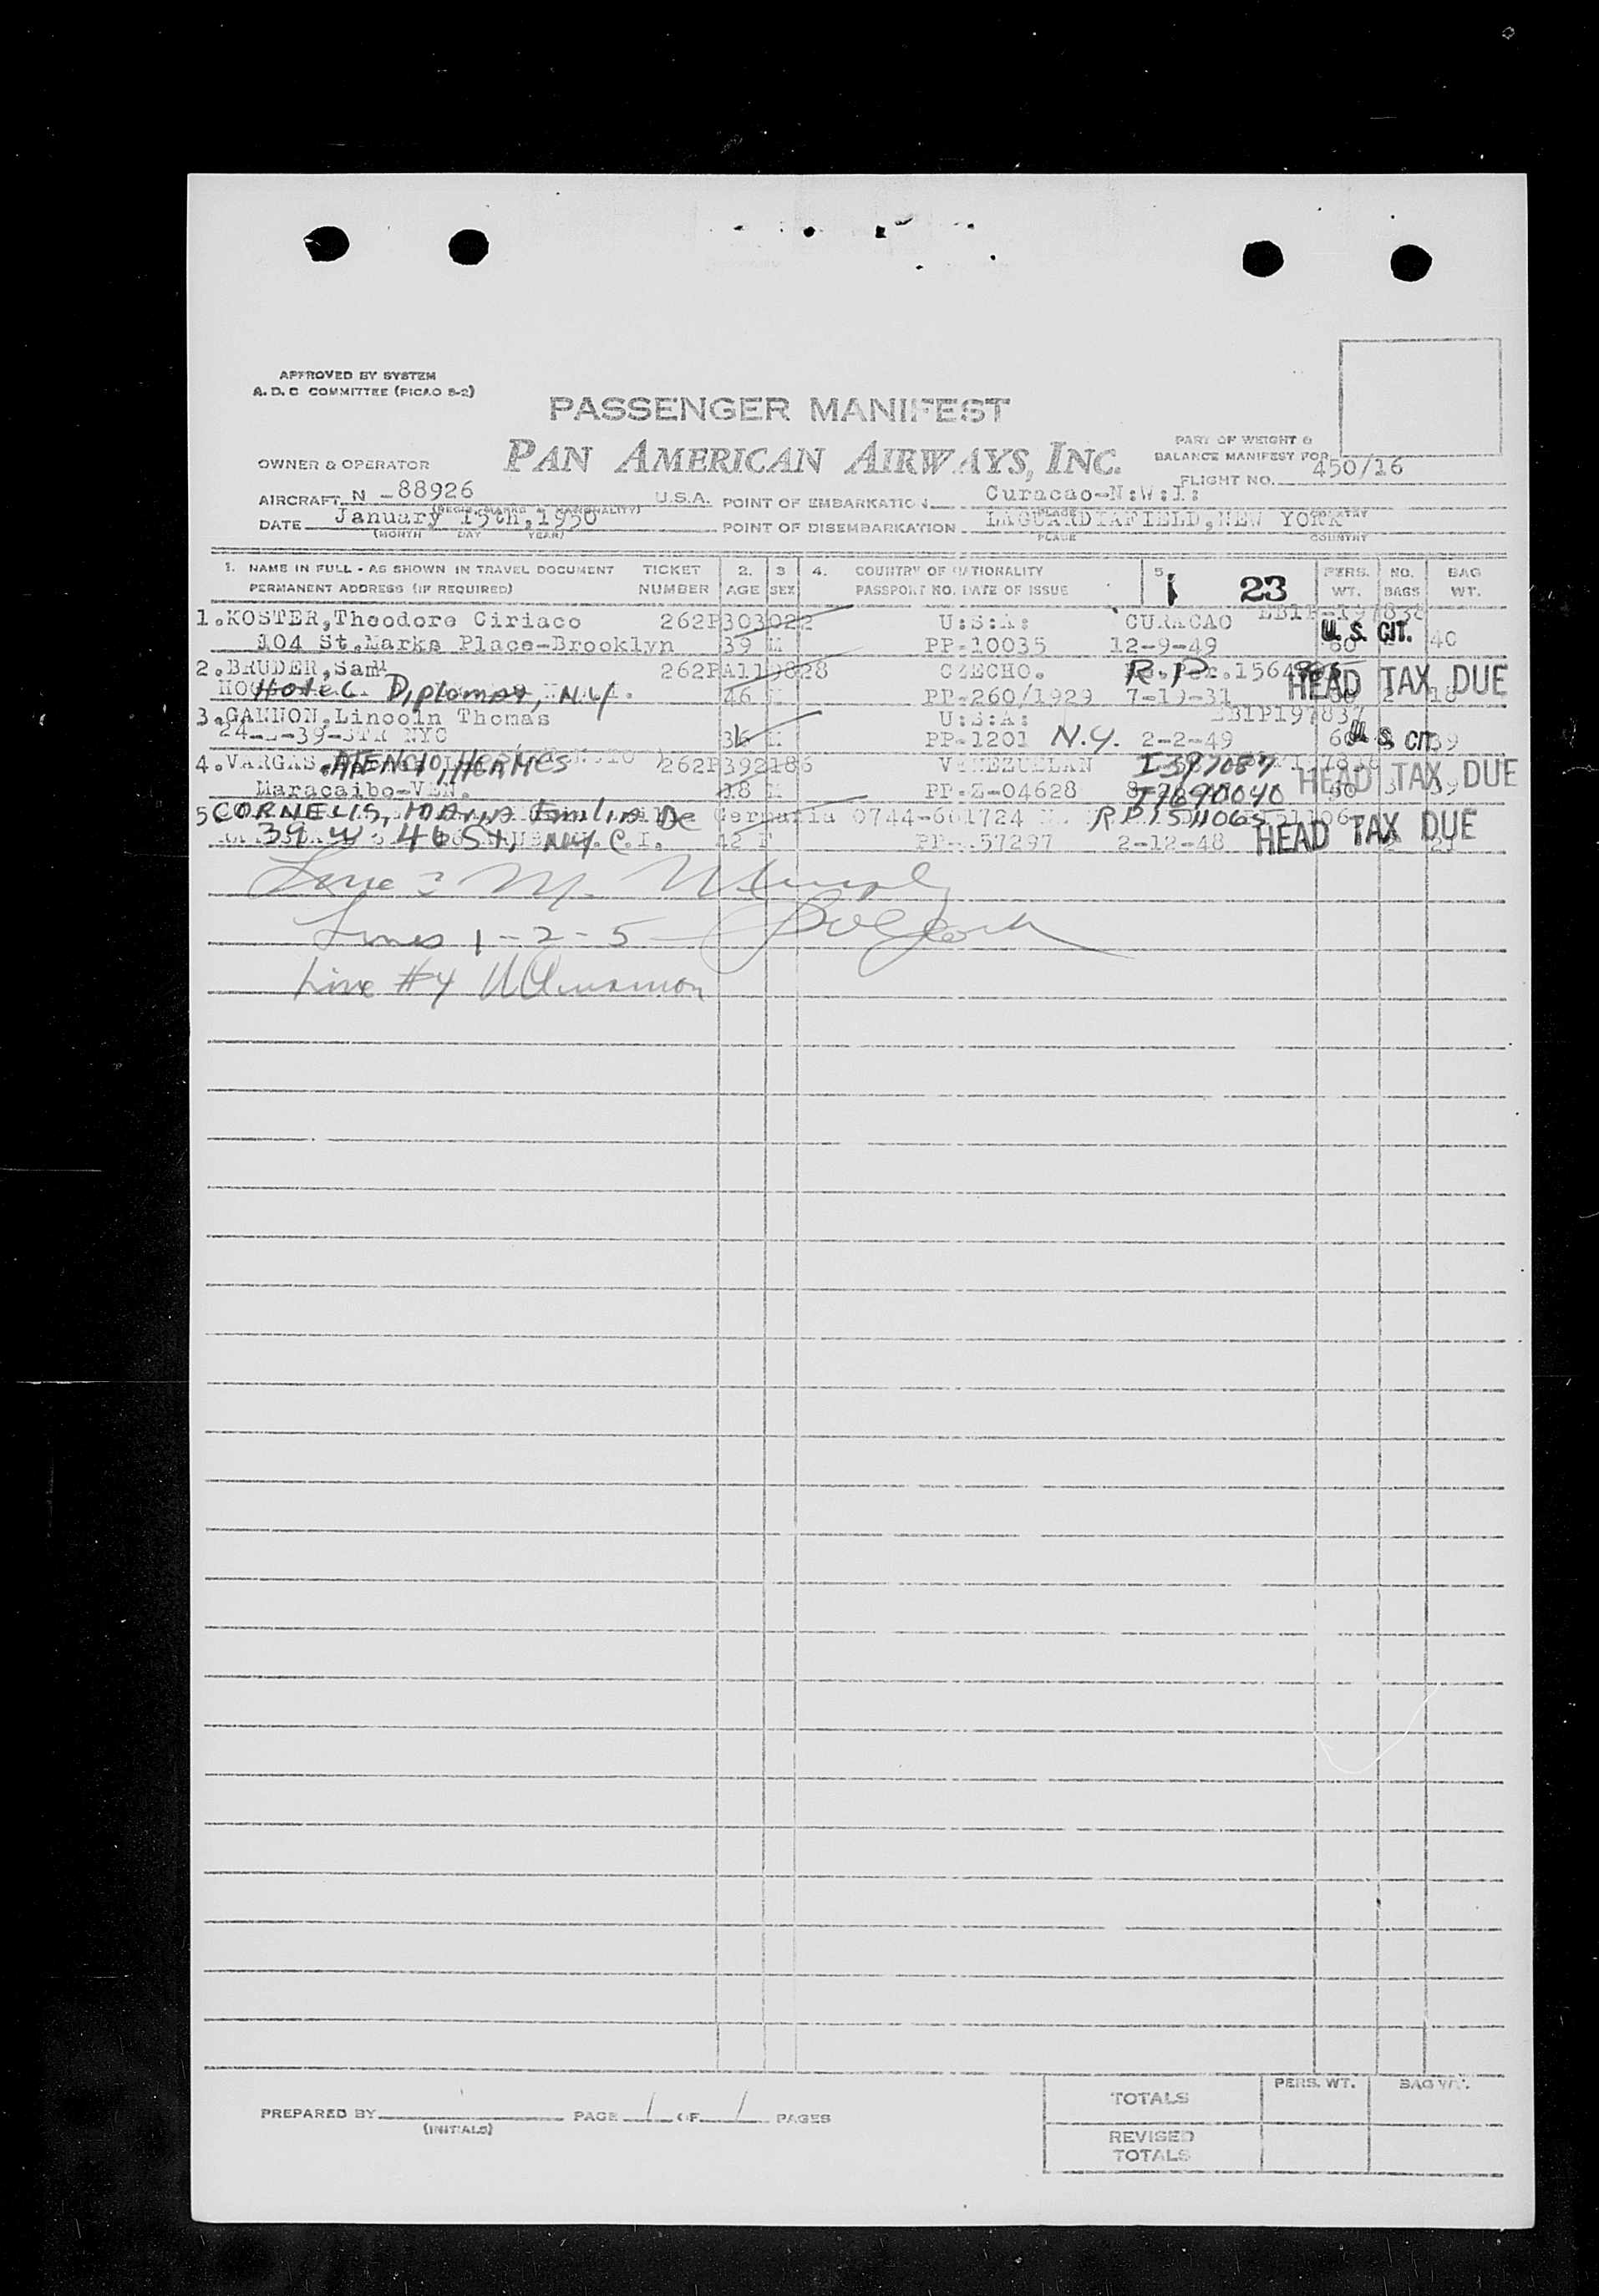 APPROVED BY SYSTEM
A. D. C COMMITTEE (PICAO S-2)
PASSENGER MANIFEST
PAN AMERICAN AIRWAYS, INC.
PART OF WEIGHT &
BALANCE MANIFEST FOR
OWNER & OPERATOR
FLIGHT NO. 450/16
AIRCRAFT N -88926 U.S.A. POINT OF EMBARKATION Curacao-N:W:I:
DATE January 15th, 1950 POINT OF DISEMBARKATION LAGUARDIAFIELD, NEW YORK
(MONTH DAY YEAR) PLACE COUNTRY
1. NAME IN FULL - AS SHOWN IN TRAVEL DOCUMENT TICKET 2. 3 4. COUNTRY OF NATIONALITY 5 PERS. NO. BAG
PERMANENT ADDRESS (IF REQUIRED) NUMBER AGE SEX PASSPORT NO. DATE OF ISSUE 1 23 WT. BAGS WT.
1.KOSTER,Theodore Ciriaco 262P303022 U:S:A: CURACAO
104 St.Marks Place-Brooklyn 39 M PP-10035 12-9-49 U. S. CIT. 40
2.BRUDER,Sam 262PA119828 CZECHO. R.P.
Hotel Diplomat, N.Y. 46 M PP-260/1929 7-19-31 HEAD TAX DUE 2 18
3.GANNON,Lincoln Thomas U:S:A:
NYC 36 M PP-1201 N.Y. 2-2-49 U S CIT 39
4.VARGAS ATENCIO, HERMES 262P392186 VENEZUELAN I397087
Maracaibo-VEN. 18 M PP-Z-04628 I7690040 HEAD TAX DUE
5 CORNELIS, Emilia De Germania 0744-601724 RP1511065
39 W 46 St, NY.C. 42 F 57297 2-12-48 HEAD TAX DUE
Line 3 M. Murphy
Lines 1-2-5
Line #4
PREPARED BY PAGE 1 OF 1 PAGES
(INITIALS)
TOTALS PERS. WT. BAG WT.
REVISED
TOTALS